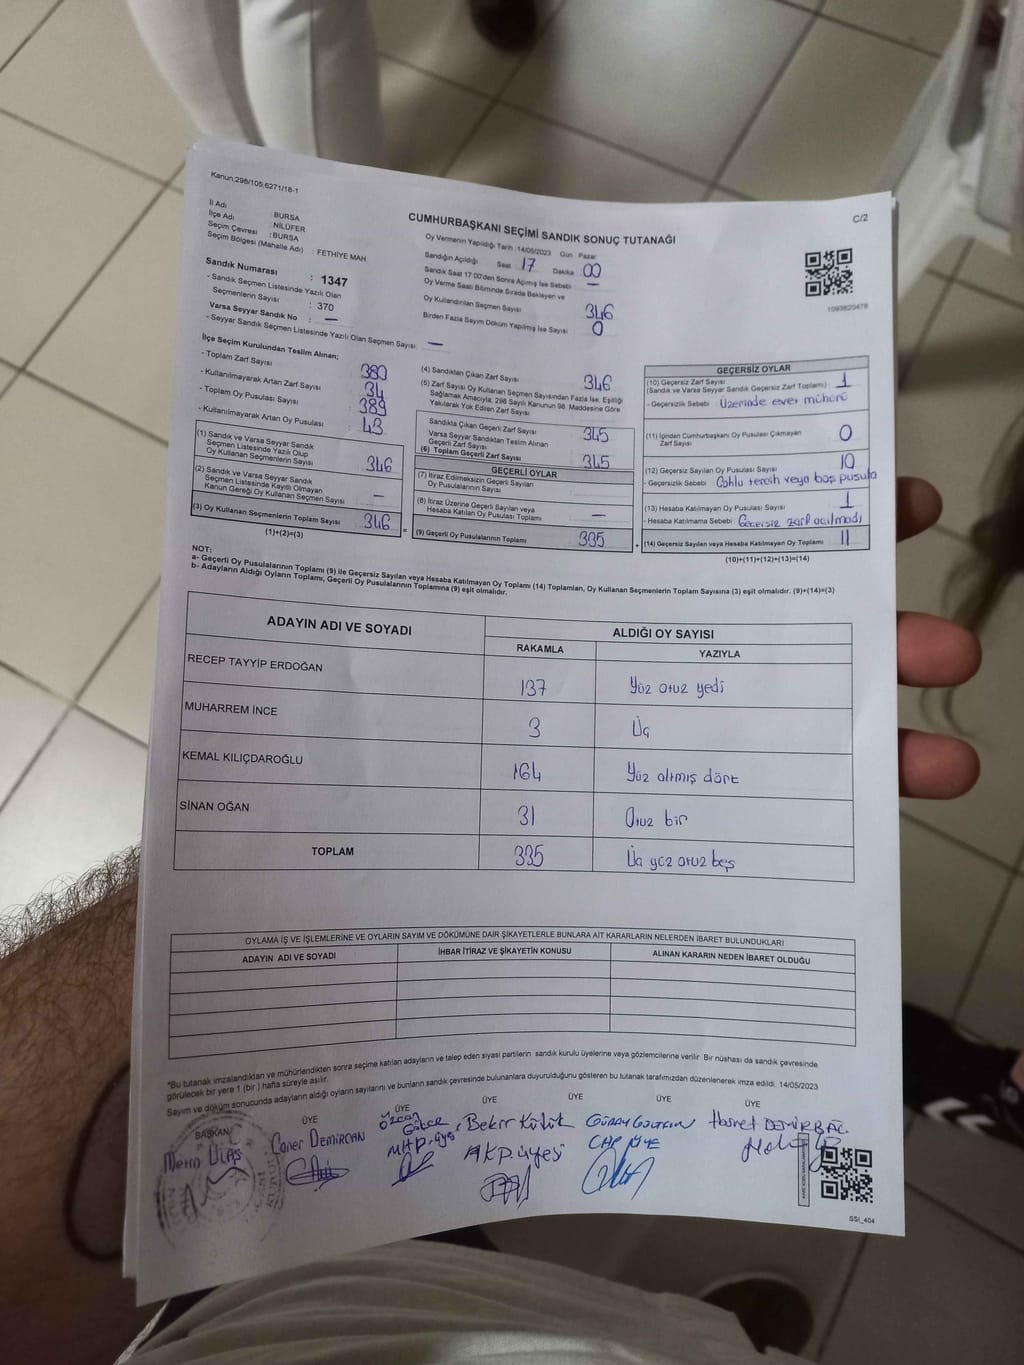 Kanun;298/105;6271/18-1
C/2
İl Adı : BURSA
İlçe Adı : NİLÜFER
Seçim Çevresi : BURSA
Seçim Bölgesi (Mahalle Adı) : FETHİYE MAH
CUMHURBAŞKANI SEÇİMİ SANDIK SONUÇ TUTANAĞI
Oy Vermenin Yapıldığı Tarih :14/05/2023 Gün Pazar
Sandığın Açıldığı Saat 17 Dakika 00
Sandık Saat 17:00'den Sonra Açılmış İse Sebebi —
Oy Verme Saati Bitiminde Sırada Bekleyen ve
Oy Kullandırılan Seçmen Sayısı 346
Birden Fazla Sayım Döküm Yapılmış İse Sayısı 0
1093820478
Sandık Numarası : 1347
- Sandık Seçmen Listesinde Yazılı Olan
Seçmenlerin Sayısı : 370
Varsa Seyyar Sandık No : —
- Seyyar Sandık Seçmen Listesinde Yazılı Olan Seçmen Sayısı: —
İlçe Seçim Kurulundan Teslim Alınan;
- Toplam Zarf Sayısı 380
- Kullanılmayarak Artan Zarf Sayısı 34
- Toplam Oy Pusulası Sayısı 389
- Kullanılmayarak Artan Oy Pusulası 43
(1) Sandık ve Varsa Seyyar Sandık
Seçmen Listesinde Yazılı Olup
Oy Kullanan Seçmenlerin Sayısı 346
(2) Sandık ve Varsa Seyyar Sandık
Seçmen Listesinde Kayıtlı Olmayan
Kanun Gereği Oy Kullanan Seçmen Sayısı —
(3) Oy Kullanan Seçmenlerin Toplam Sayısı 346
(1)+(2)=(3)
(4) Sandıktan Çıkan Zarf Sayısı 346
(5) Zarf Sayısı Oy Kullanan Seçmen Sayısından Fazla İse, Eşitliği
Sağlamak Amacıyla, 298 Sayılı Kanunun 98. Maddesine Göre
Yakılarak Yok Edilen Zarf Sayısı
Sandıkta Çıkan Geçerli Zarf Sayısı 345
Varsa Seyyar Sandıktan Teslim Alınan
Geçerli Zarf Sayısı
(6) Toplam Geçerli Zarf Sayısı 345
GEÇERLİ OYLAR
(7) İtiraz Edilmeksizin Geçerli Sayılan
Oy Pusulalarının Sayısı
(8) İtiraz Üzerine Geçerli Sayılan veya
Hesaba Katılan Oy Pusulası Toplamı —
(9) Geçerli Oy Pusulalarının Toplamı 335
GEÇERSİZ OYLAR
(10) Geçersiz Zarf Sayısı
(Sandık ve Varsa Seyyar Sandık Geçersiz Zarf Toplamı) 1
- Geçersizlik Sebebi Üzerinde evet mührü
(11) İçinden Cumhurbaşkanı Oy Pusulası Çıkmayan
Zarf Sayısı 0
(12) Geçersiz Sayılan Oy Pusulası Sayısı 10
- Geçersizlik Sebebi Çoklu tercih veya boş pusula
(13) Hesaba Katılmayan Oy Pusulası Sayısı 1
- Hesaba Katılmama Sebebi Geçersiz zarf açılmadı
(14) Geçersiz Sayılan veya Hesaba Katılmayan Oy Toplamı 11
(10)+(11)+(12)+(13)=(14)
NOT:
a- Geçerli Oy Pusulalarının Toplamı (9) ile Geçersiz Sayılan veya Hesaba Katılmayan Oy Toplamı (14) Toplamları, Oy Kullanan Seçmenlerin Toplam Sayısına (3) eşit olmalıdır. (9)+(14)=(3)
b- Adayların Aldığı Oyların Toplamı, Geçerli Oy Pusulalarının Toplamına (9) eşit olmalıdır.
ADAYIN ADI VE SOYADI
ALDIĞI OY SAYISI
RAKAMLA YAZIYLA
RECEP TAYYİP ERDOĞAN 137 Yüz otuz yedi
MUHARREM İNCE 3 Üç
KEMAL KILIÇDAROĞLU 164 Yüz altmış dört
SİNAN OĞAN 31 Otuz bir
TOPLAM 335 Üç yüz otuz beş
OYLAMA İŞ VE İŞLEMLERİNE VE OYLARIN SAYIM VE DÖKÜMÜNE DAİR ŞİKAYETLERLE BUNLARA AİT KARARLARIN NELERDEN İBARET BULUNDUKLARI
ADAYIN ADI VE SOYADI İHBAR İTİRAZ VE ŞİKAYETİN KONUSU ALINAN KARARIN NEDEN İBARET OLDUĞU
*Bu tutanak imzalandıktan ve mühürlendikten sonra seçime katılan adayların ve talep eden siyasi partilerin sandık kurulu üyelerine veya gözlemcilerine verilir Bir nüshası da sandık çevresinde
görülecek bir yere 1 (bir ) hafta süreyle asılır.
Sayım ve döküm sonucunda adayların aldığı oyların sayılarını ve bunların sandık çevresinde bulunanlara duyurulduğunu gösteren bu tutanak tarafımızdan düzenlenerek imza edildi. 14/05/2023
BAŞKAN ÜYE ÜYE ÜYE ÜYE ÜYE ÜYE
Caner DEMİRCAN
Özcan
MHP-üye
Bekir
AKP.üyesi
CHP ÜYE
Hasret DEMİRBAĞ
SSİ_404